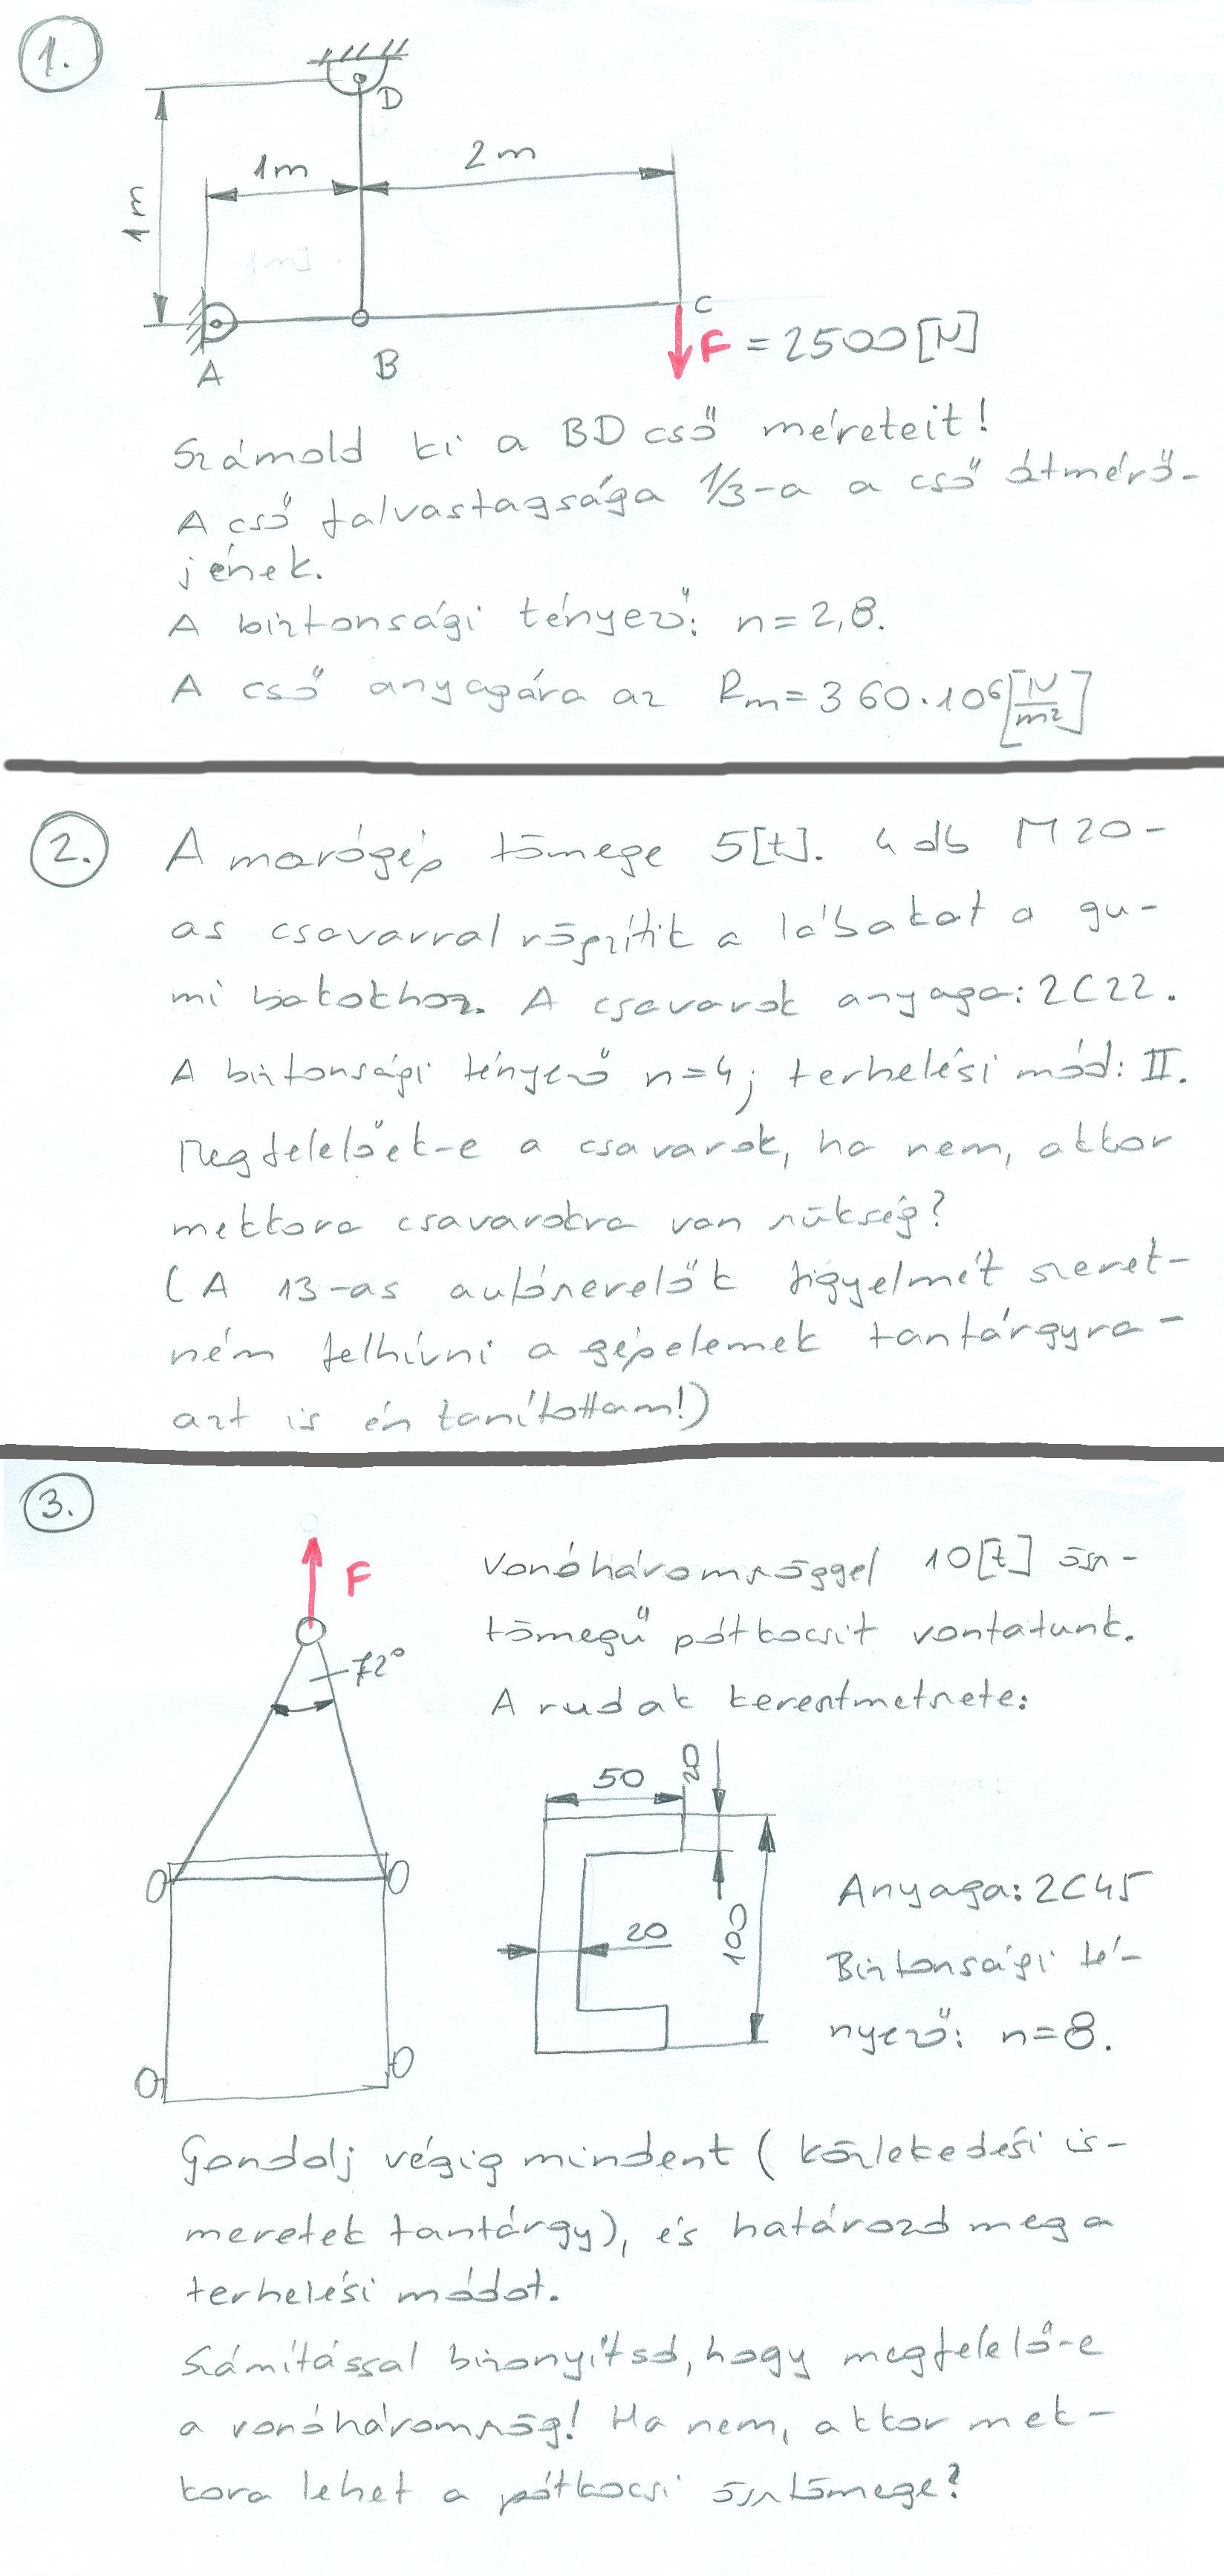 1.
D
1m
2m
1m
A
B
C
F = 2500[N]
Számold ki a BD cső méreteit!
A cső falvastagsága 1/3-a a cső átmérő-
jének.
A biztonsági tényező: n=2,8.
A cső anyagára az Rm=360·10⁶[N/m²]
2.
A marógép tömege 5[t]. 4 db M20-
as csavarral rögzítik a lábakat a gu-
mi bakokhoz. A csavarok anyaga: 2C22.
A biztonsági tényező n=4; terhelési mód: II.
Megfelelőek-e a csavarok, ha nem, akkor
mekkora csavarokra van szükség?
(A 13-as autószerelők figyelmét szeret-
ném felhívni a gépelemek tantárgyra -
azt is én tanítottam!)
3.
F
72°
Vonóháromszöggel 10[t] össz-
tömegű pótkocsit vontatunk.
A rudak keresztmetszete:
50
20
20
100
Anyaga: 2C45
Biztonsági té-
nyező: n=8.
Gondolj végig mindent (közlekedési is-
meretek tantárgy), és határozd meg a
terhelési módot.
Számítással bizonyítsd, hogy megfelelő-e
a vonóháromszög! Ha nem, akkor mek-
kora lehet a pótkocsi össztömege?